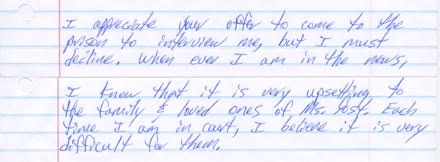 I appreciate your offer to come to the
prison to interview me, but I must
decline. When ever I am in the news,
I know that it is very upsetting to
the family & loved ones of Ms. Yost. Each
time I am in court, I believe it is very
difficult for them.